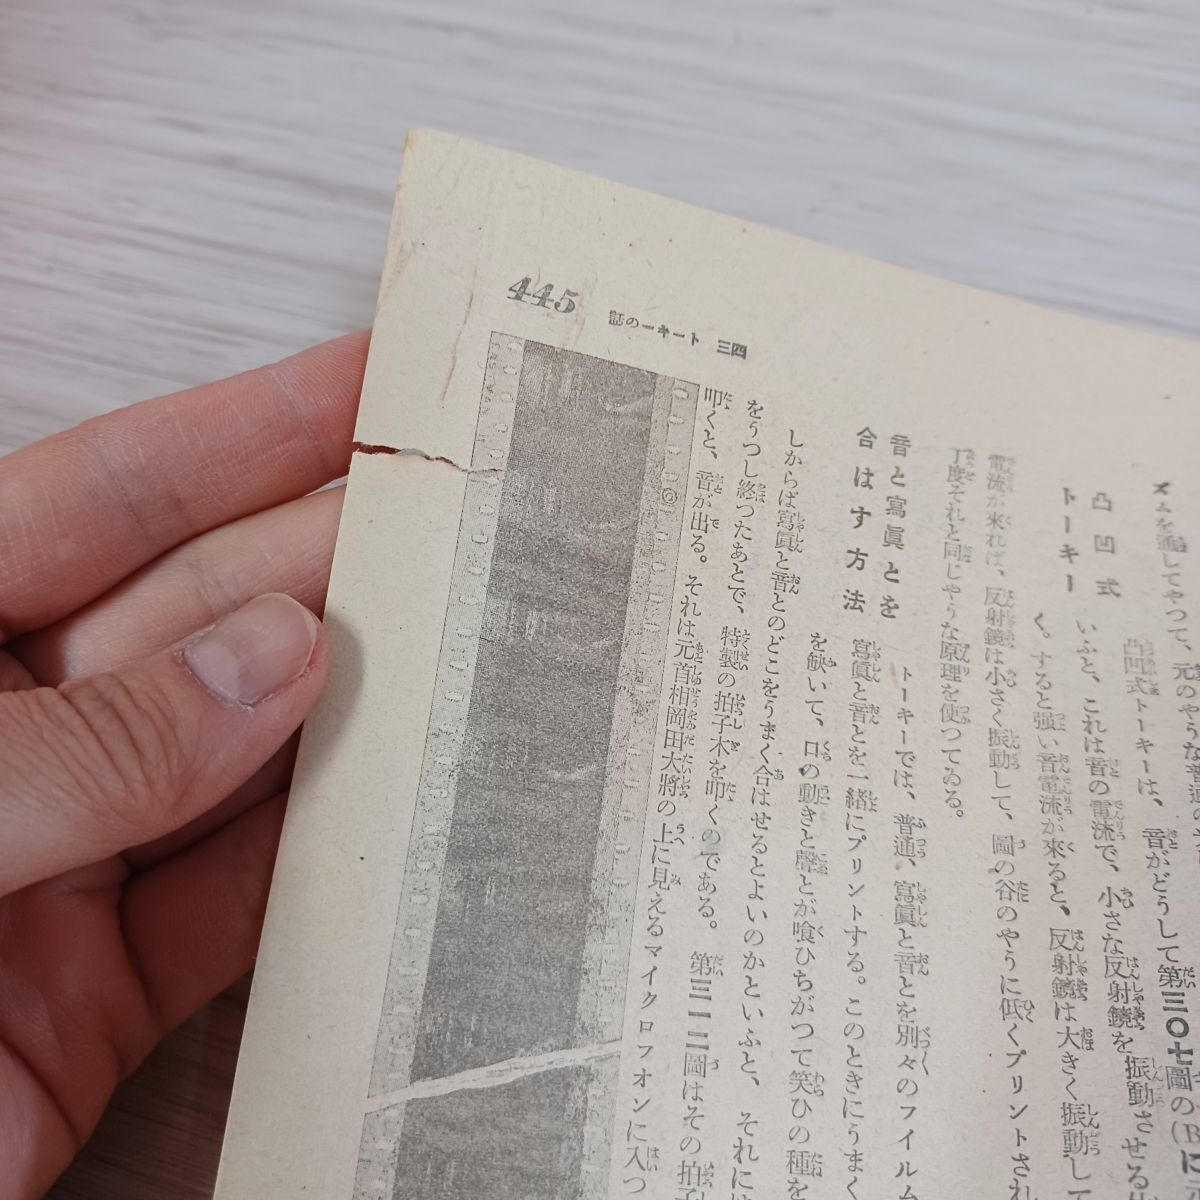 445
四三 トーキーの話
ズムを通してやつて、元のやうな普通の
凸凹式
トーキー
凸凹式トーキーは、音がどうして第三〇七圖の(B
いふと、これは音の電流で、小さな反射鏡を振動させる
く。すると强い音電流が來ると、反射鏡は大きく振動して
電流が來れば、反射鏡は小さく振動して、圖の谷のやうに低くプリントされ
丁度それと同じやうな原理を使つてゐる。
音と寫眞とを
合はす方法
トーキーでは、普通、寫眞と音とを別々のフイルム
寫眞と音とを一緖にプリントする。このときにうまく
を缺いて、口の動きと聲とが喰ひちがつて笑ひの種を
しからば寫眞と音とのどこをうまく合はせるとよいのかといふと、それには
をうつし終つたあとで、特製の拍子木を叩くのである。第三一二圖はその拍子
叩くと、音が出る。それは元首相岡田大將の上に見えるマイクロフオンに入つ